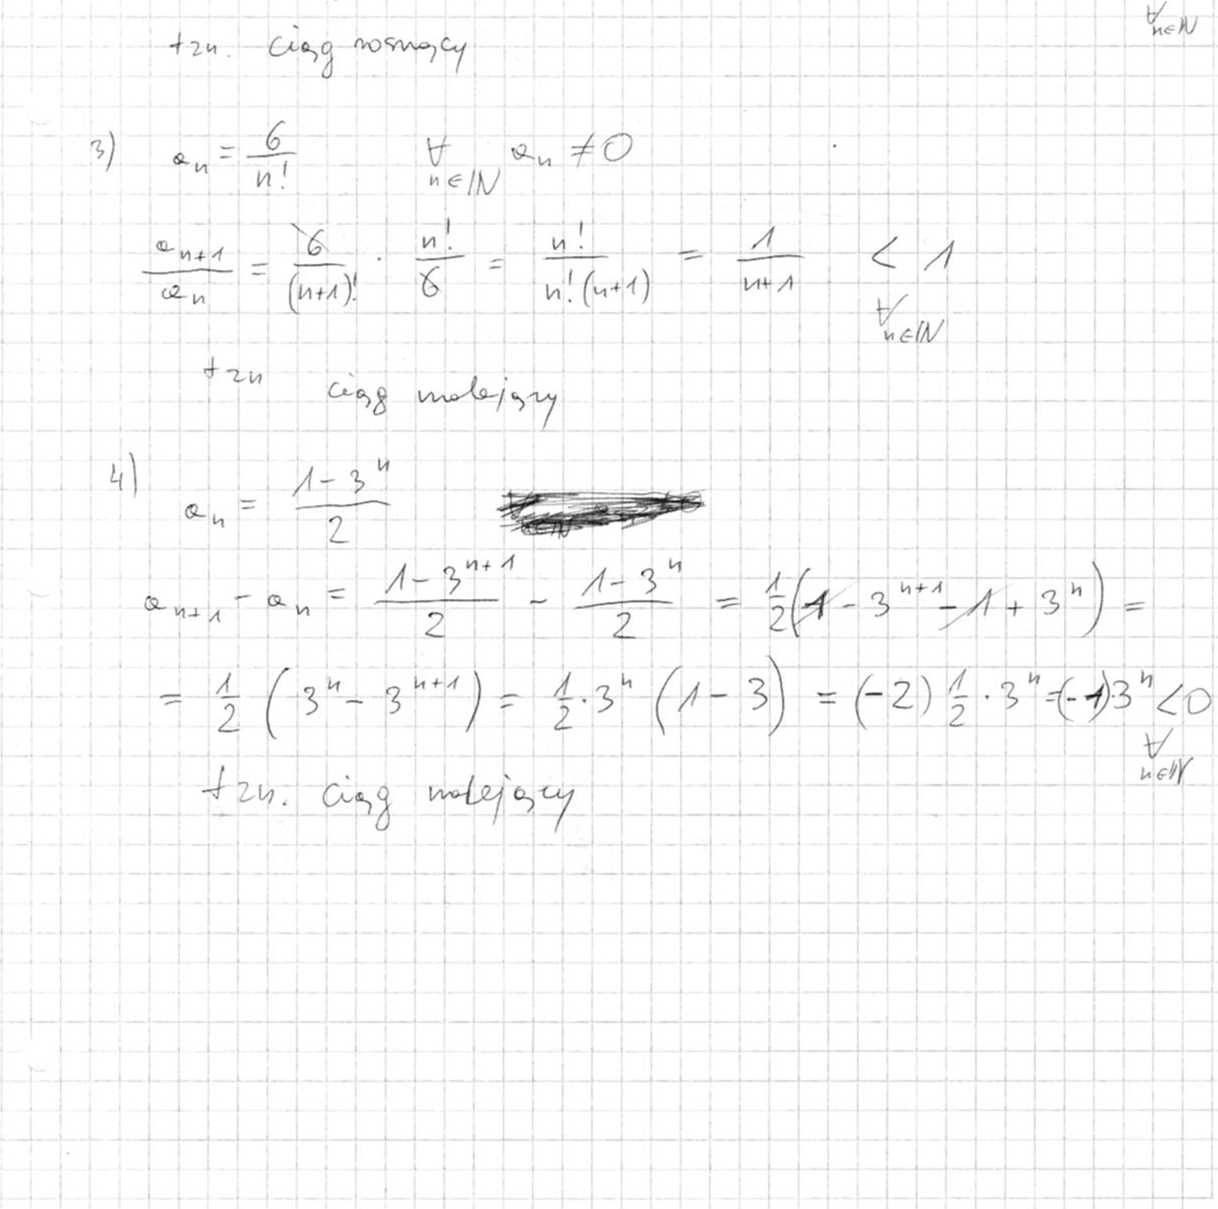 ∀ n∈ℕ
tzn. ciąg rosnący
3) aₙ = 6/n! ∀ n∈ℕ aₙ ≠ 0
aₙ₊₁/aₙ = 6/(n+1)! · n!/6 = n!/(n!(n+1)) = 1/(n+1) < 1
∀ n∈ℕ
tzn ciąg malejący
4) aₙ = (1-3ⁿ)/2
aₙ₊₁ - aₙ = (1-3ⁿ⁺¹)/2 - (1-3ⁿ)/2 = 1/2(1 - 3ⁿ⁺¹ - 1 + 3ⁿ) =
= 1/2 (3ⁿ - 3ⁿ⁺¹) = 1/2 · 3ⁿ (1-3) = (-2) 1/2 · 3ⁿ = (-1)3ⁿ < 0
∀ n∈ℕ
tzn. ciąg malejący